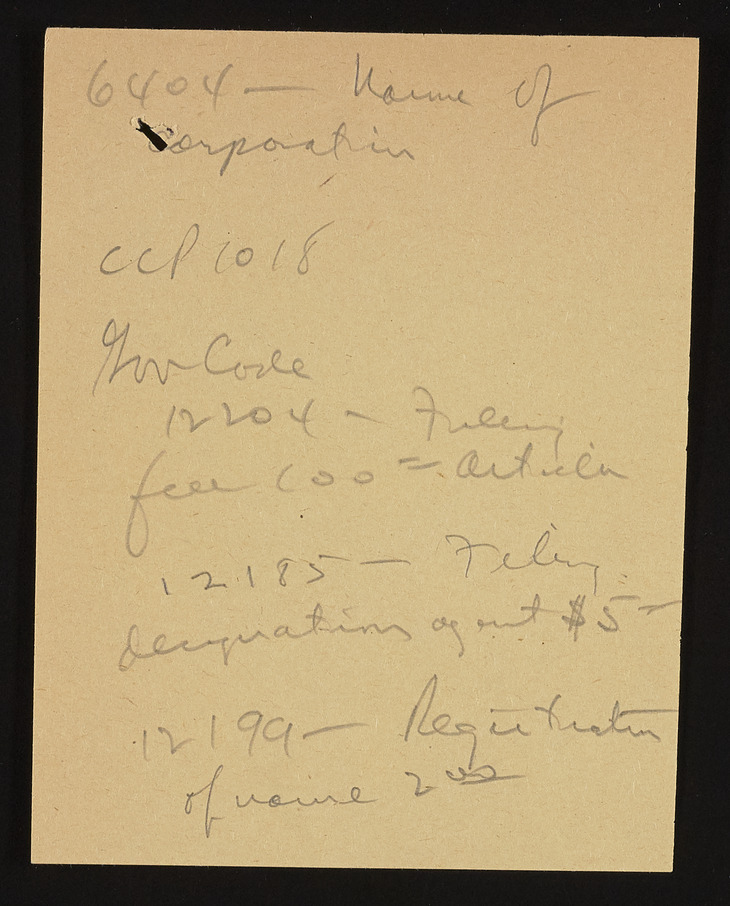 6404 — Name of
Corporation
CCP 1018
Gov Code
12204 — Filing
fee 100 = Articles
12185 — Filing
designation agent $5 —
12199 — Registration
of name 2 00